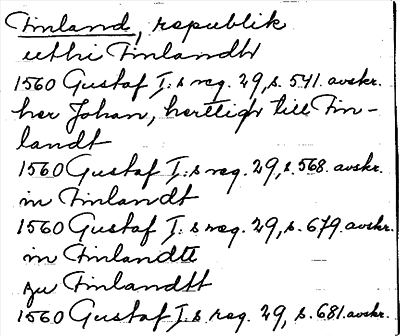 Finland, republik
uthi Finlandh
1560 Gustaf I:s reg. 29, s. 541. avskr.
her Johan, herttigh till Fin-
landt
1560 Gustaf I:s reg. 29, s. 568. avskr.
in Finlandt
1560 Gustaf I:s reg. 29, s. 679. avskr.
in Finlandtt
zu Finlandtt
1560 Gustaf I:s reg. 29, s. 681. avskr.